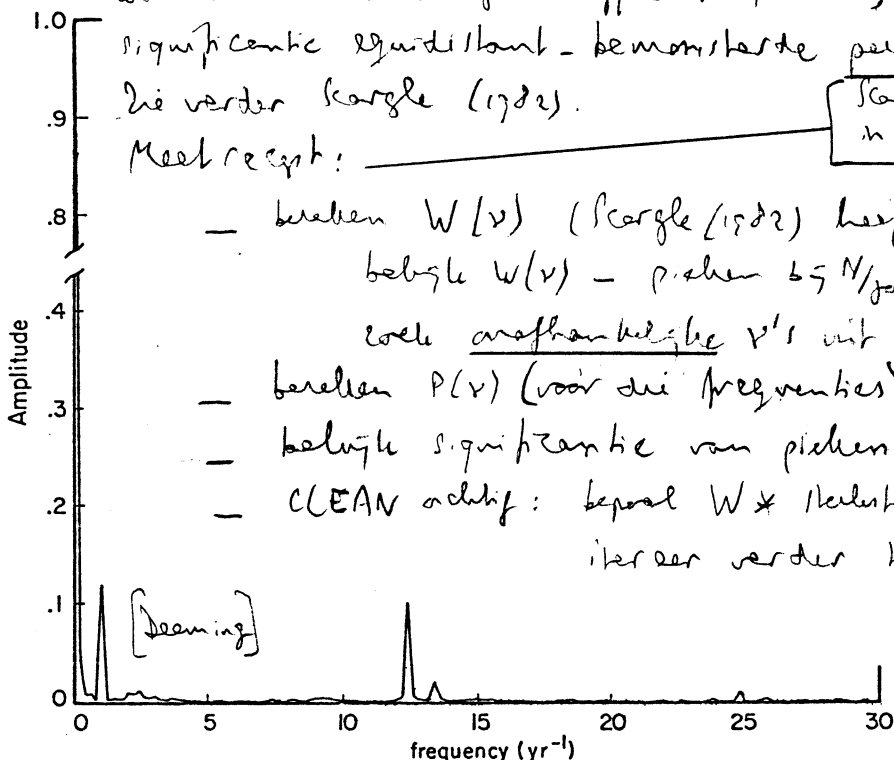 1.0
significantie equidistant-bemonsterde
Zie verder Scargle (1982).
.9
in
Meet recept:
.8
bereken W(ν) (Scargle (1982)
bekijk W(ν) – pieken bij N/
.4
zoek onafhankelijke ν's uit
Amplitude
bereken P(ν) (vóór die frequenties
.3
bekijk significantie van pieken
.2
CLEAN achtig: bepaal W *
itereer verder
.1
[Deeming]
0
0 5 10 15 20 25 30
frequency (yr⁻¹)